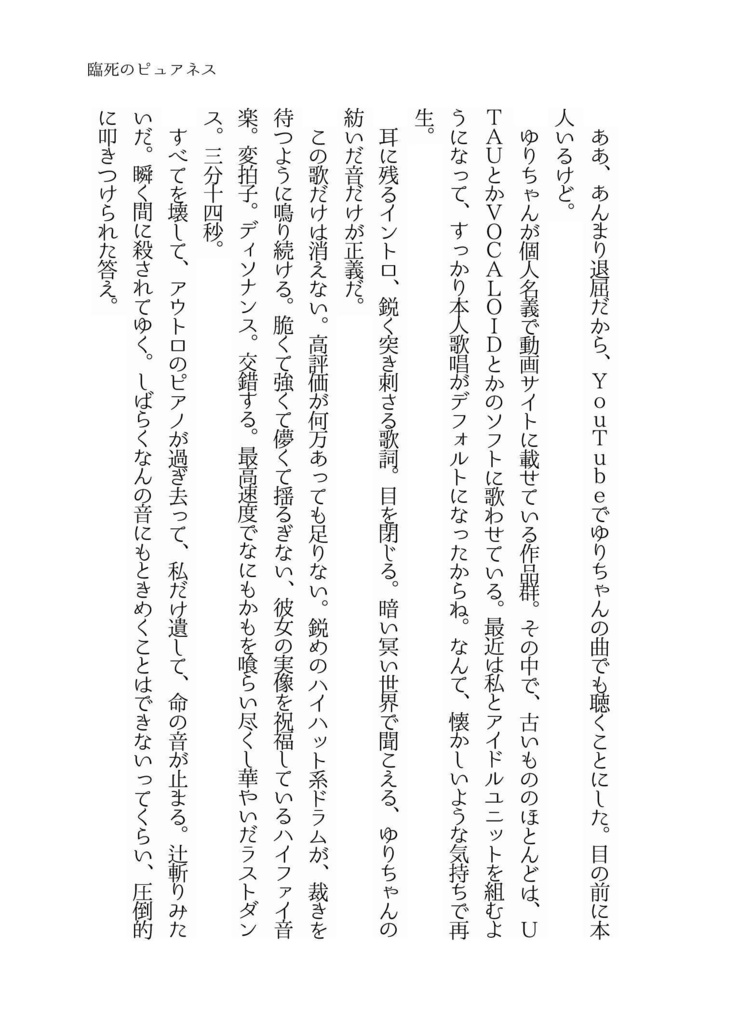 臨死のピュアネス
　ああ、あんまり退屈だから、ＹｏｕＴｕｂｅでゆりちゃんの曲でも聴くことにした。目の前に本
人いるけど。
　ゆりちゃんが個人名義で動画サイトに載せている作品群。その中で、古いもののほとんどは、Ｕ
ＴＡＵとかＶＯＣＡＬＯＩＤとかのソフトに歌わせている。最近は私とアイドルユニットを組むよ
うになって、すっかり本人歌唱がデフォルトになったからね。なんて、懐かしいような気持ちで再
生。
　耳に残るイントロ、鋭く突き刺さる歌詞。目を閉じる。暗い冥い世界で聞こえる、ゆりちゃんの
紡いだ音だけが正義だ。
　この歌だけは消えない。高評価が何万あっても足りない。鋭めのハイハット系ドラムが、裁きを
待つように鳴り続ける。脆くて強くて儚くて揺るぎない、彼女の実像を祝福しているハイファイ音
楽。変拍子。ディソナンス。交錯する。最高速度でなにもかもを喰らい尽くし華やいだラストダン
ス。三分十四秒。
　すべてを壊して、アウトロのピアノが過ぎ去って、私だけ遺して、命の音が止まる。辻斬りみた
いだ。瞬く間に殺されてゆく。しばらくなんの音にもときめくことはできないってくらい、圧倒的
に叩きつけられた答え。